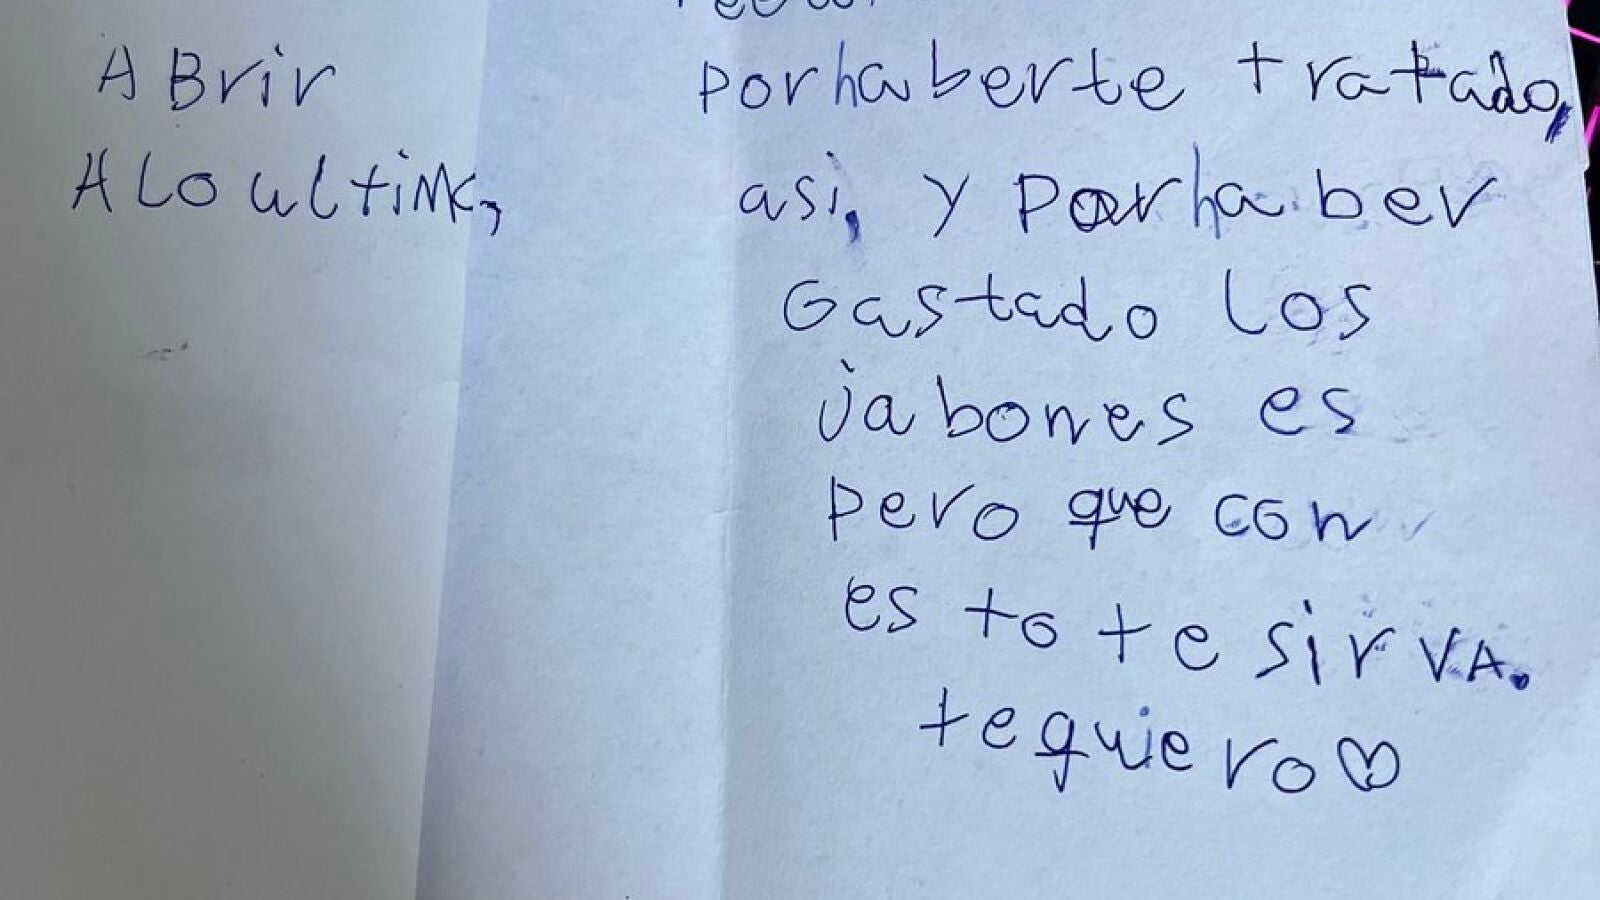 ABrir
ALo ultimo,
por haberte tratado,
asi, y por haber
Gastado los
jabones es
pero que con
es to te sirvA.
te quiero♡